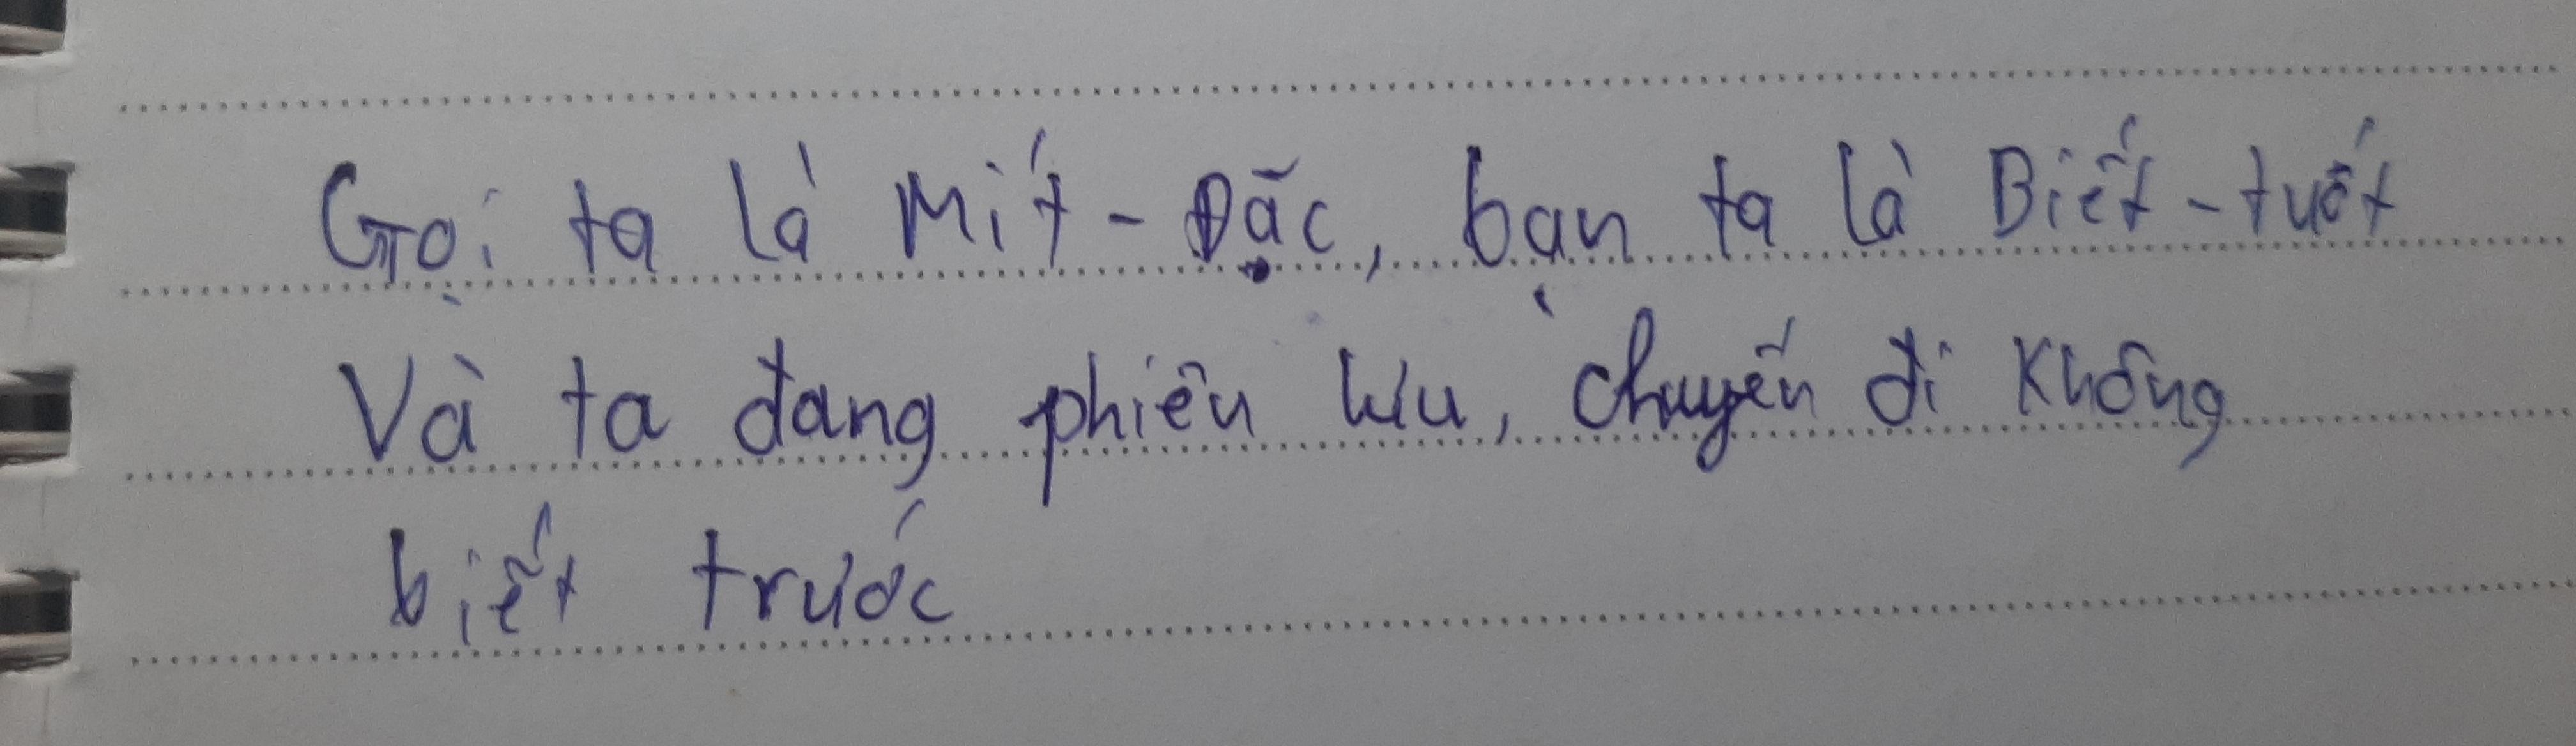 Gọi ta là Mít-Đặc, bạn ta là Biết-tuốt
Và ta đang phiêu lưu, chuyến đi Không
biết trước